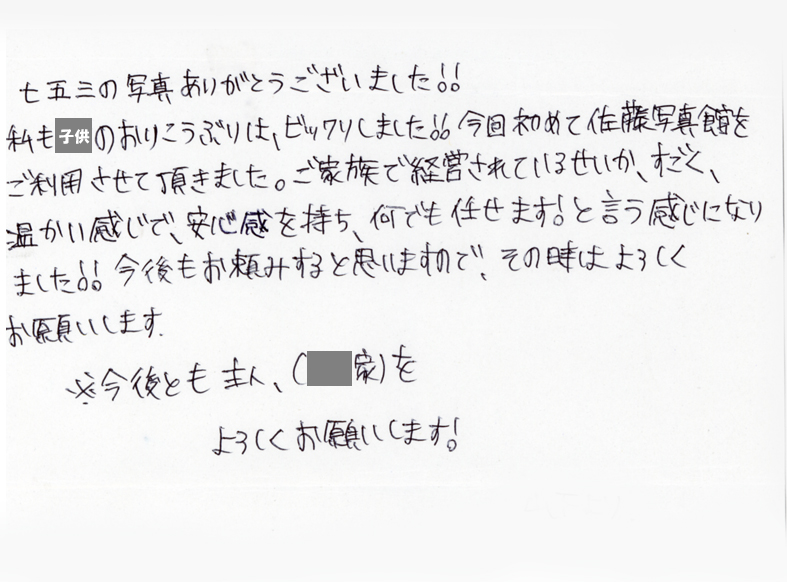 七五三の写真ありがとうございました!!
私も子供のおりこうぶりは、ビックリしました!! 今回初めて佐藤写真館を
ご利用させて頂きました。ご家族で経営されているせいか、すごく、
温かい感じで、安心感を持ち、何でも任せます!と言う感じになり
ました!! 今後もお頼みすると思いますので、その時はよろしく
お願いします.
※今後とも主人、(家)を
よろしくお願いします!